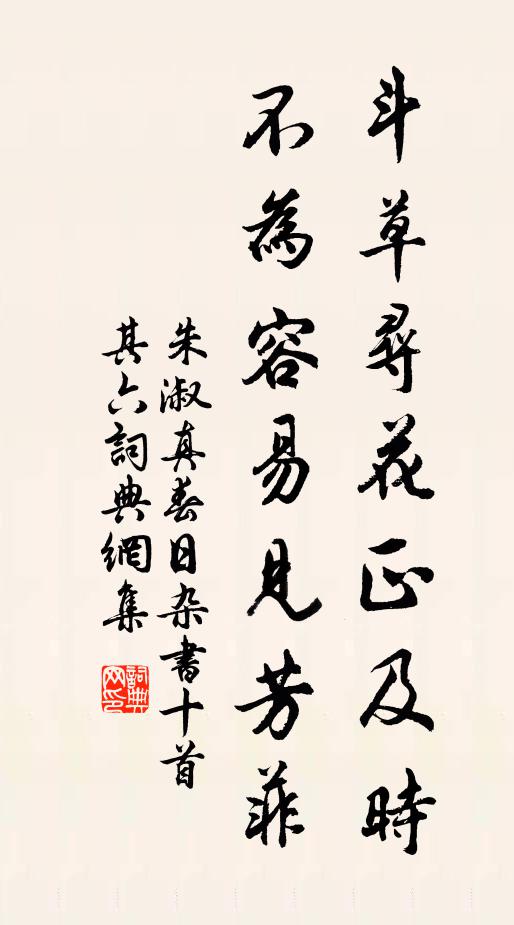 斗草尋花正及時
不為容易見芳菲
朱淑真春日杂書十首
其六詞典網集
詞典
网印